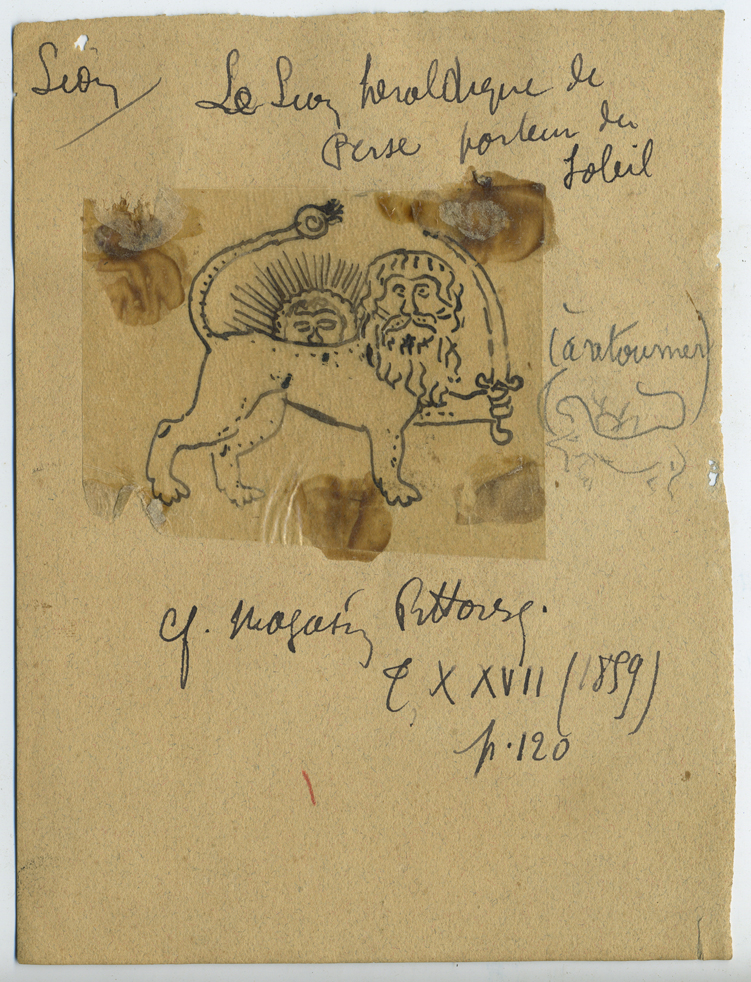 Lion
Le Lion héraldique de
Perse porteur du
Soleil
(à retourner)
cf. Magasin Pittoresq.
T. XXVII (1859)
p. 120